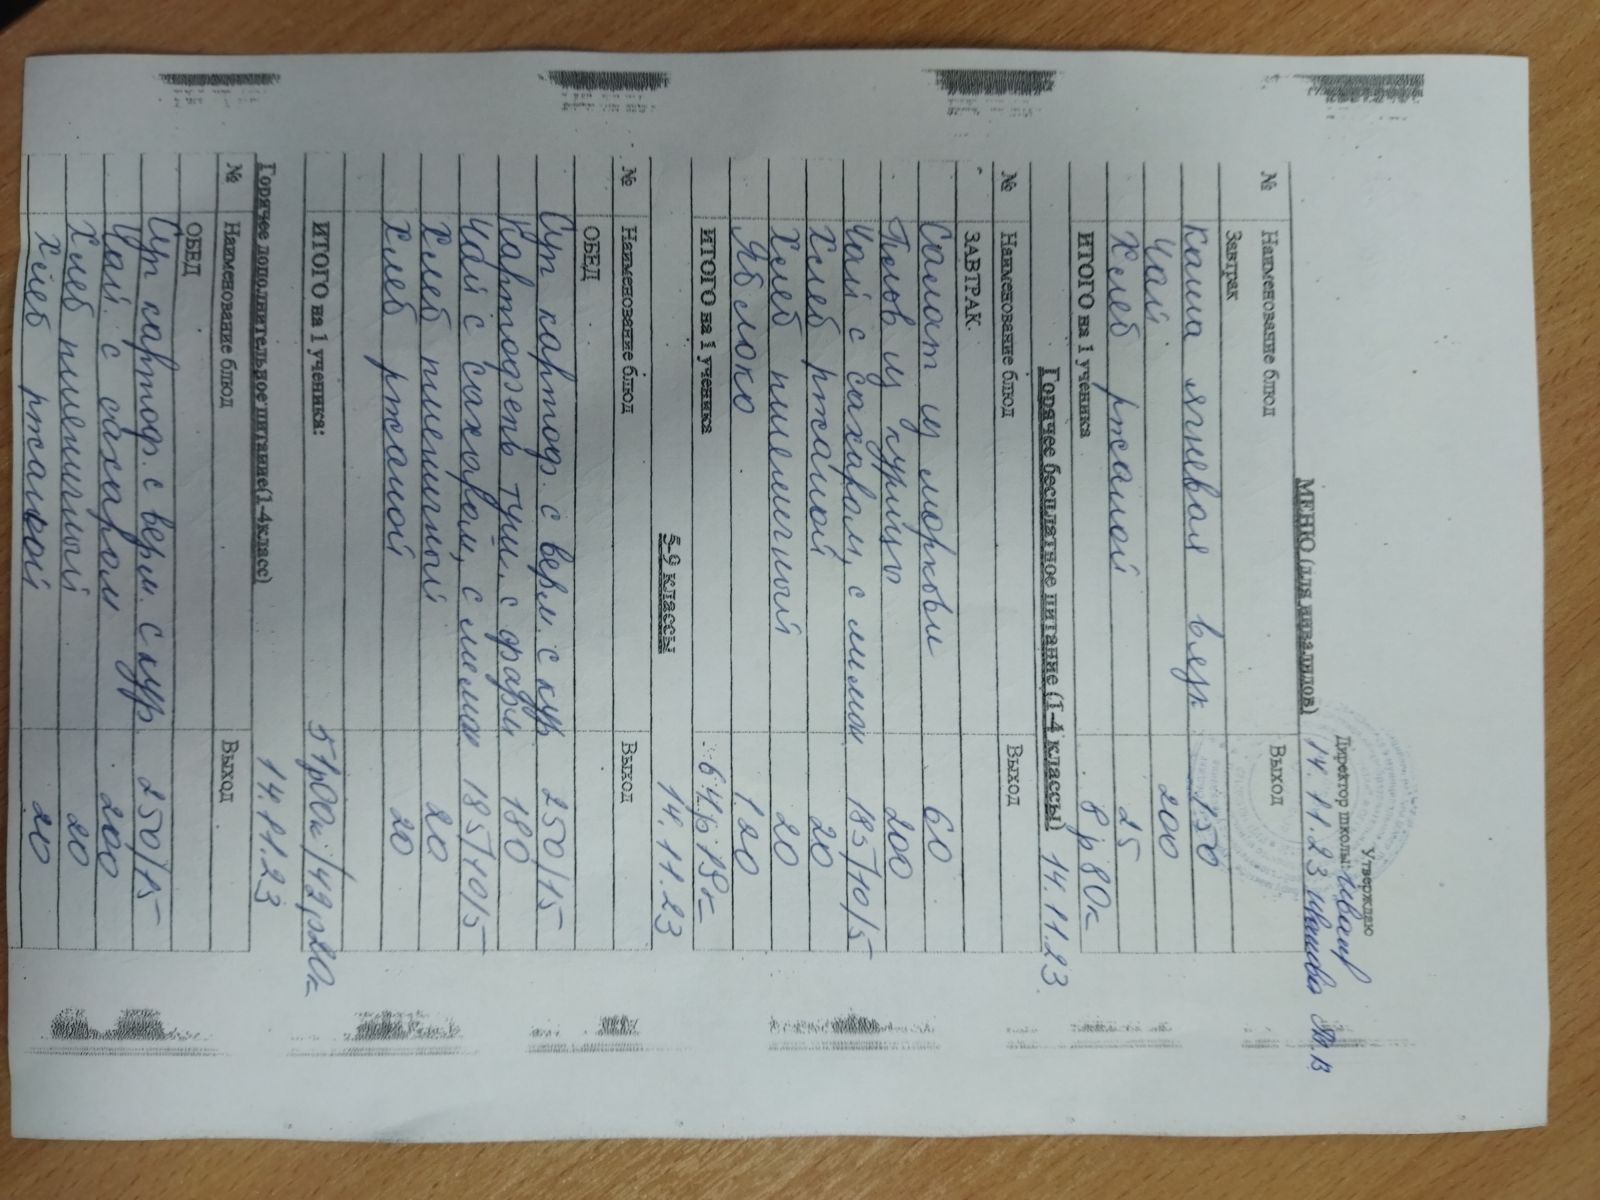 Утверждаю
Директор школы:
МЕНЮ (для инвалидов) 14.11.23
№ Наименование блюд Выход
Завтрак
Каша ячневая вязк 150
Чай 200
Хлеб ржаной 25
ИТОГО на 1 ученика 8р80к
Горячее бесплатное питание (1-4 классы) 14.11.23.
№ Наименование блюд Выход
ЗАВТРАК.
Салат из моркови 60
Плов из курицы 200
Чай с сахаром, с лимон 185/10/5
Хлеб ржаной 20
Хлеб пшеничный 20
Яблоко 120
ИТОГО на 1 ученика 64р19к
5-9 классы 14.11.23
№ Наименование блюд Выход
ОБЕД
Суп картоф. с верм. с кур 250/15
Картофель туш. с фарш 180
Чай с сахаром, с лимон 185/10/5
Хлеб пшеничный 20
Хлеб ржаной 20
ИТОГО на 1 ученика: 51р00к/42р20к
Горячее дополнительное питание(1-4класс) 14.11.23
№ Наименование блюд Выход
ОБЕД
Суп картоф. с верм. с кур. 250/15
Чай с сахаром 200
Хлеб пшеничный 20
Хлеб ржаной 20